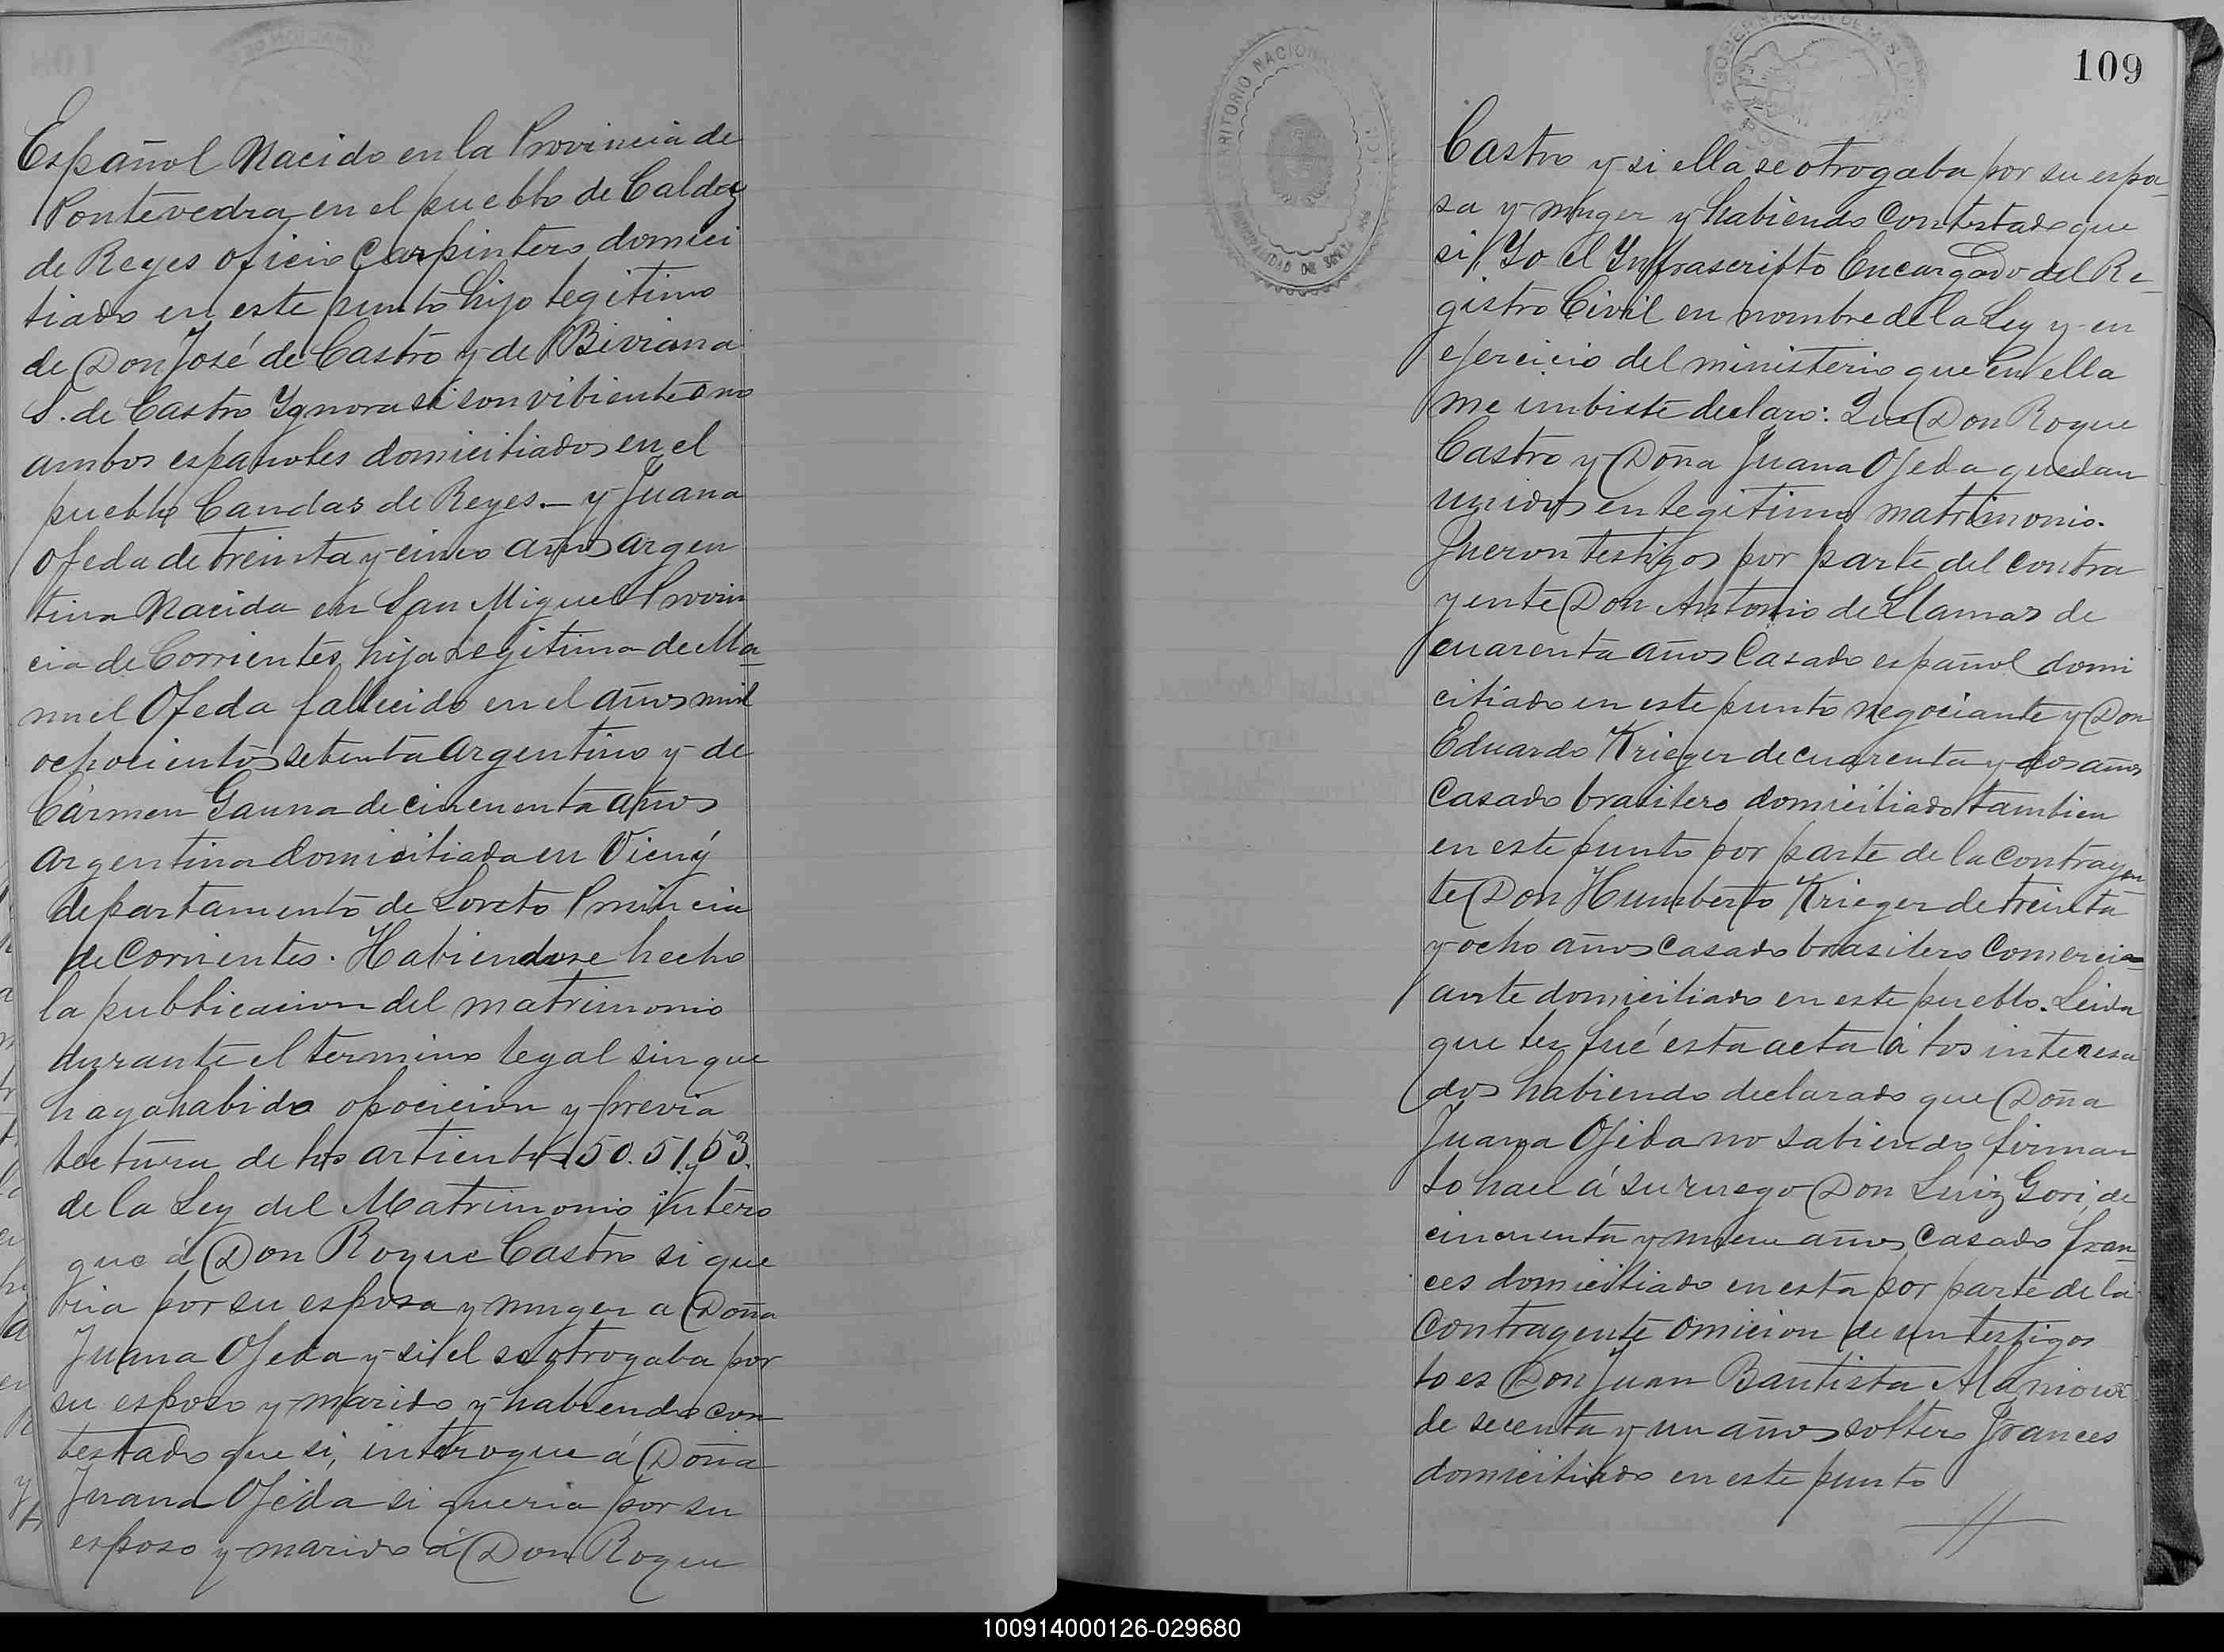 Español Nacido en la Provincia de
Pontevedra en el pueblo de Caldas
de Reyes oficio Carpintero domici
liado en este punto hijo legitimo
de Don José de Castro y de Biviana
S. de Castro Ygnora si son vibiente o no
ambos españoles domiciliados en el
pueblo Candas de Reyes.- y Juana
Ojeda de treinta y cinco años argen
tina Nacida en San Miguel Provin
cia de Corrientes, hija Legitima de Ma
nuel Ojeda fallecido en el años mil
ochocientos setenta Argentino y de
Cármen Gauna de cincuenta años
argentina domiciliada en
departamento de Loreto Provincia
de Corrientes. Habiendose hecho
la publicacion del matrimonio
durante el termino legal sin que
haya habido opocicion y previa
lectura de los articulos 50. 51. y 53.
de la Ley del Matrimonio intero
gue á Don Roque Castro si que
ria por su esposa y muger a Doña
Juana Ojeda y si el se otrogaba por
su esposo y marido y habiendo con
testado que si, interogue á Doña
Juana Ojeda si queria por su
esposo y marido á Don Roque
109
Castro y si ella se otrogaba por su espo
sa y muger y habiendo Contestado que
si, Yo el Ynfrascripto Encargado del Re
gistro Civil en nombre de la Ley y en
ejercicio del ministerio que en ella
me imbiste declaro: Que Don Roque
Castro y Doña Juana Ojeda quedan
unidos en legitimo matrimonio.
Fueron testigos por parte del contra
yente Don Antonio de Llamas de
cuarenta años Casado español domi
ciliado en este punto negociante y Don
Eduardo Krieger de cuarenta y dos años
Casado brasilero domiciliado tambien
en este punto por parte de la contrayen
te Don Humberto Krieger de treinta
y ocho años Casado brasilero Comerci
ante domiciliado en este pueblo. Leida
que les fué esta acta á los interesa
dos habiendo declarado que Doña
Juana Ojeda no sabiendo firmar
lo hace á su ruego Don Luiz Gori, de
cincuenta y nueve años, Casado fran
ces domiciliado en esta por parte de la
Contrayente omicion de un testigos
lo es Don Juan Bautista
de secenta y un años soltero frances
domiciliado en este punto
100914000126-029680